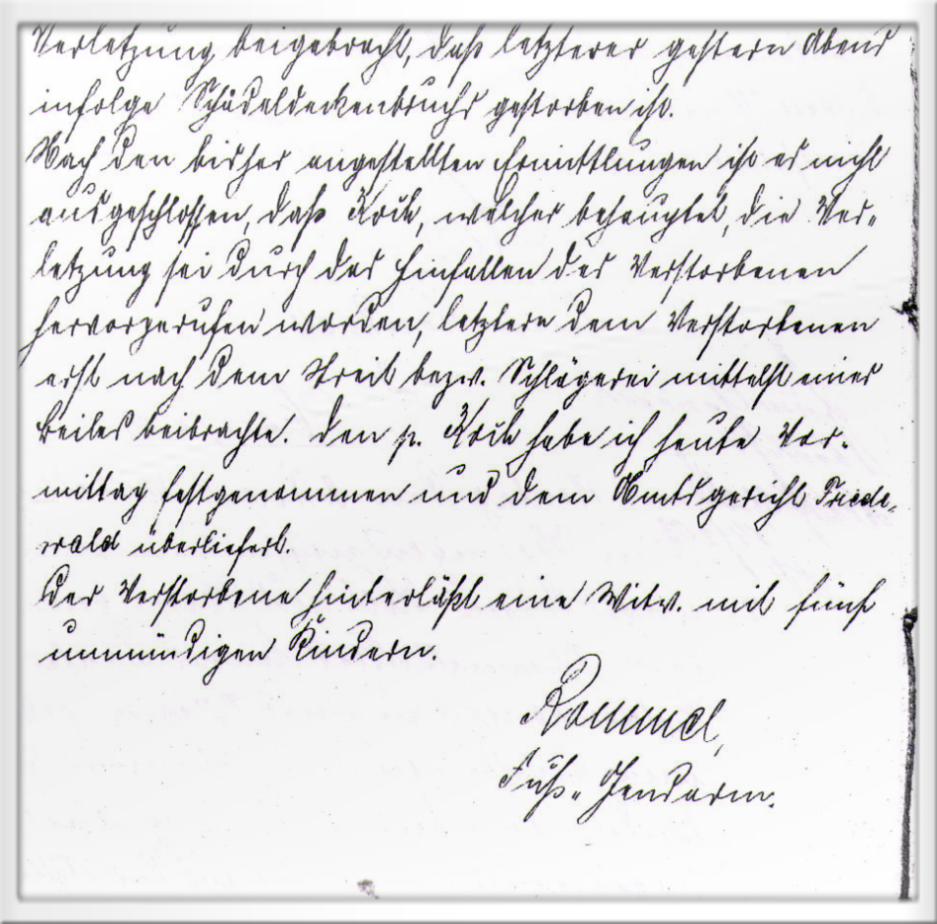 Verletzung beigebracht, daß letzterer gestern Abend
infolge Schädeldeckenbruchs gestorben ist.
Nach den bisher angestellten Ermittlungen ist es nicht
ausgeschlossen, daß Koch, welcher behauptet, die Ver-
letzung sei durch das Hinfallen des Verstorbenen
hervorgerufen worden, letztere dem Verstorbenen
erst nach dem Streit bezw. Schlägerei mittelst eines
Beiles beibrachte. Den p. Koch habe ich heute Vor-
mittag festgenommen und dem Amtsgericht Friede-
wald überliefert.
Der Verstorbene hinterläßt eine Witw. mit fünf
unmündigen Kindern.
Rommel,
Fuß-Gendarm.